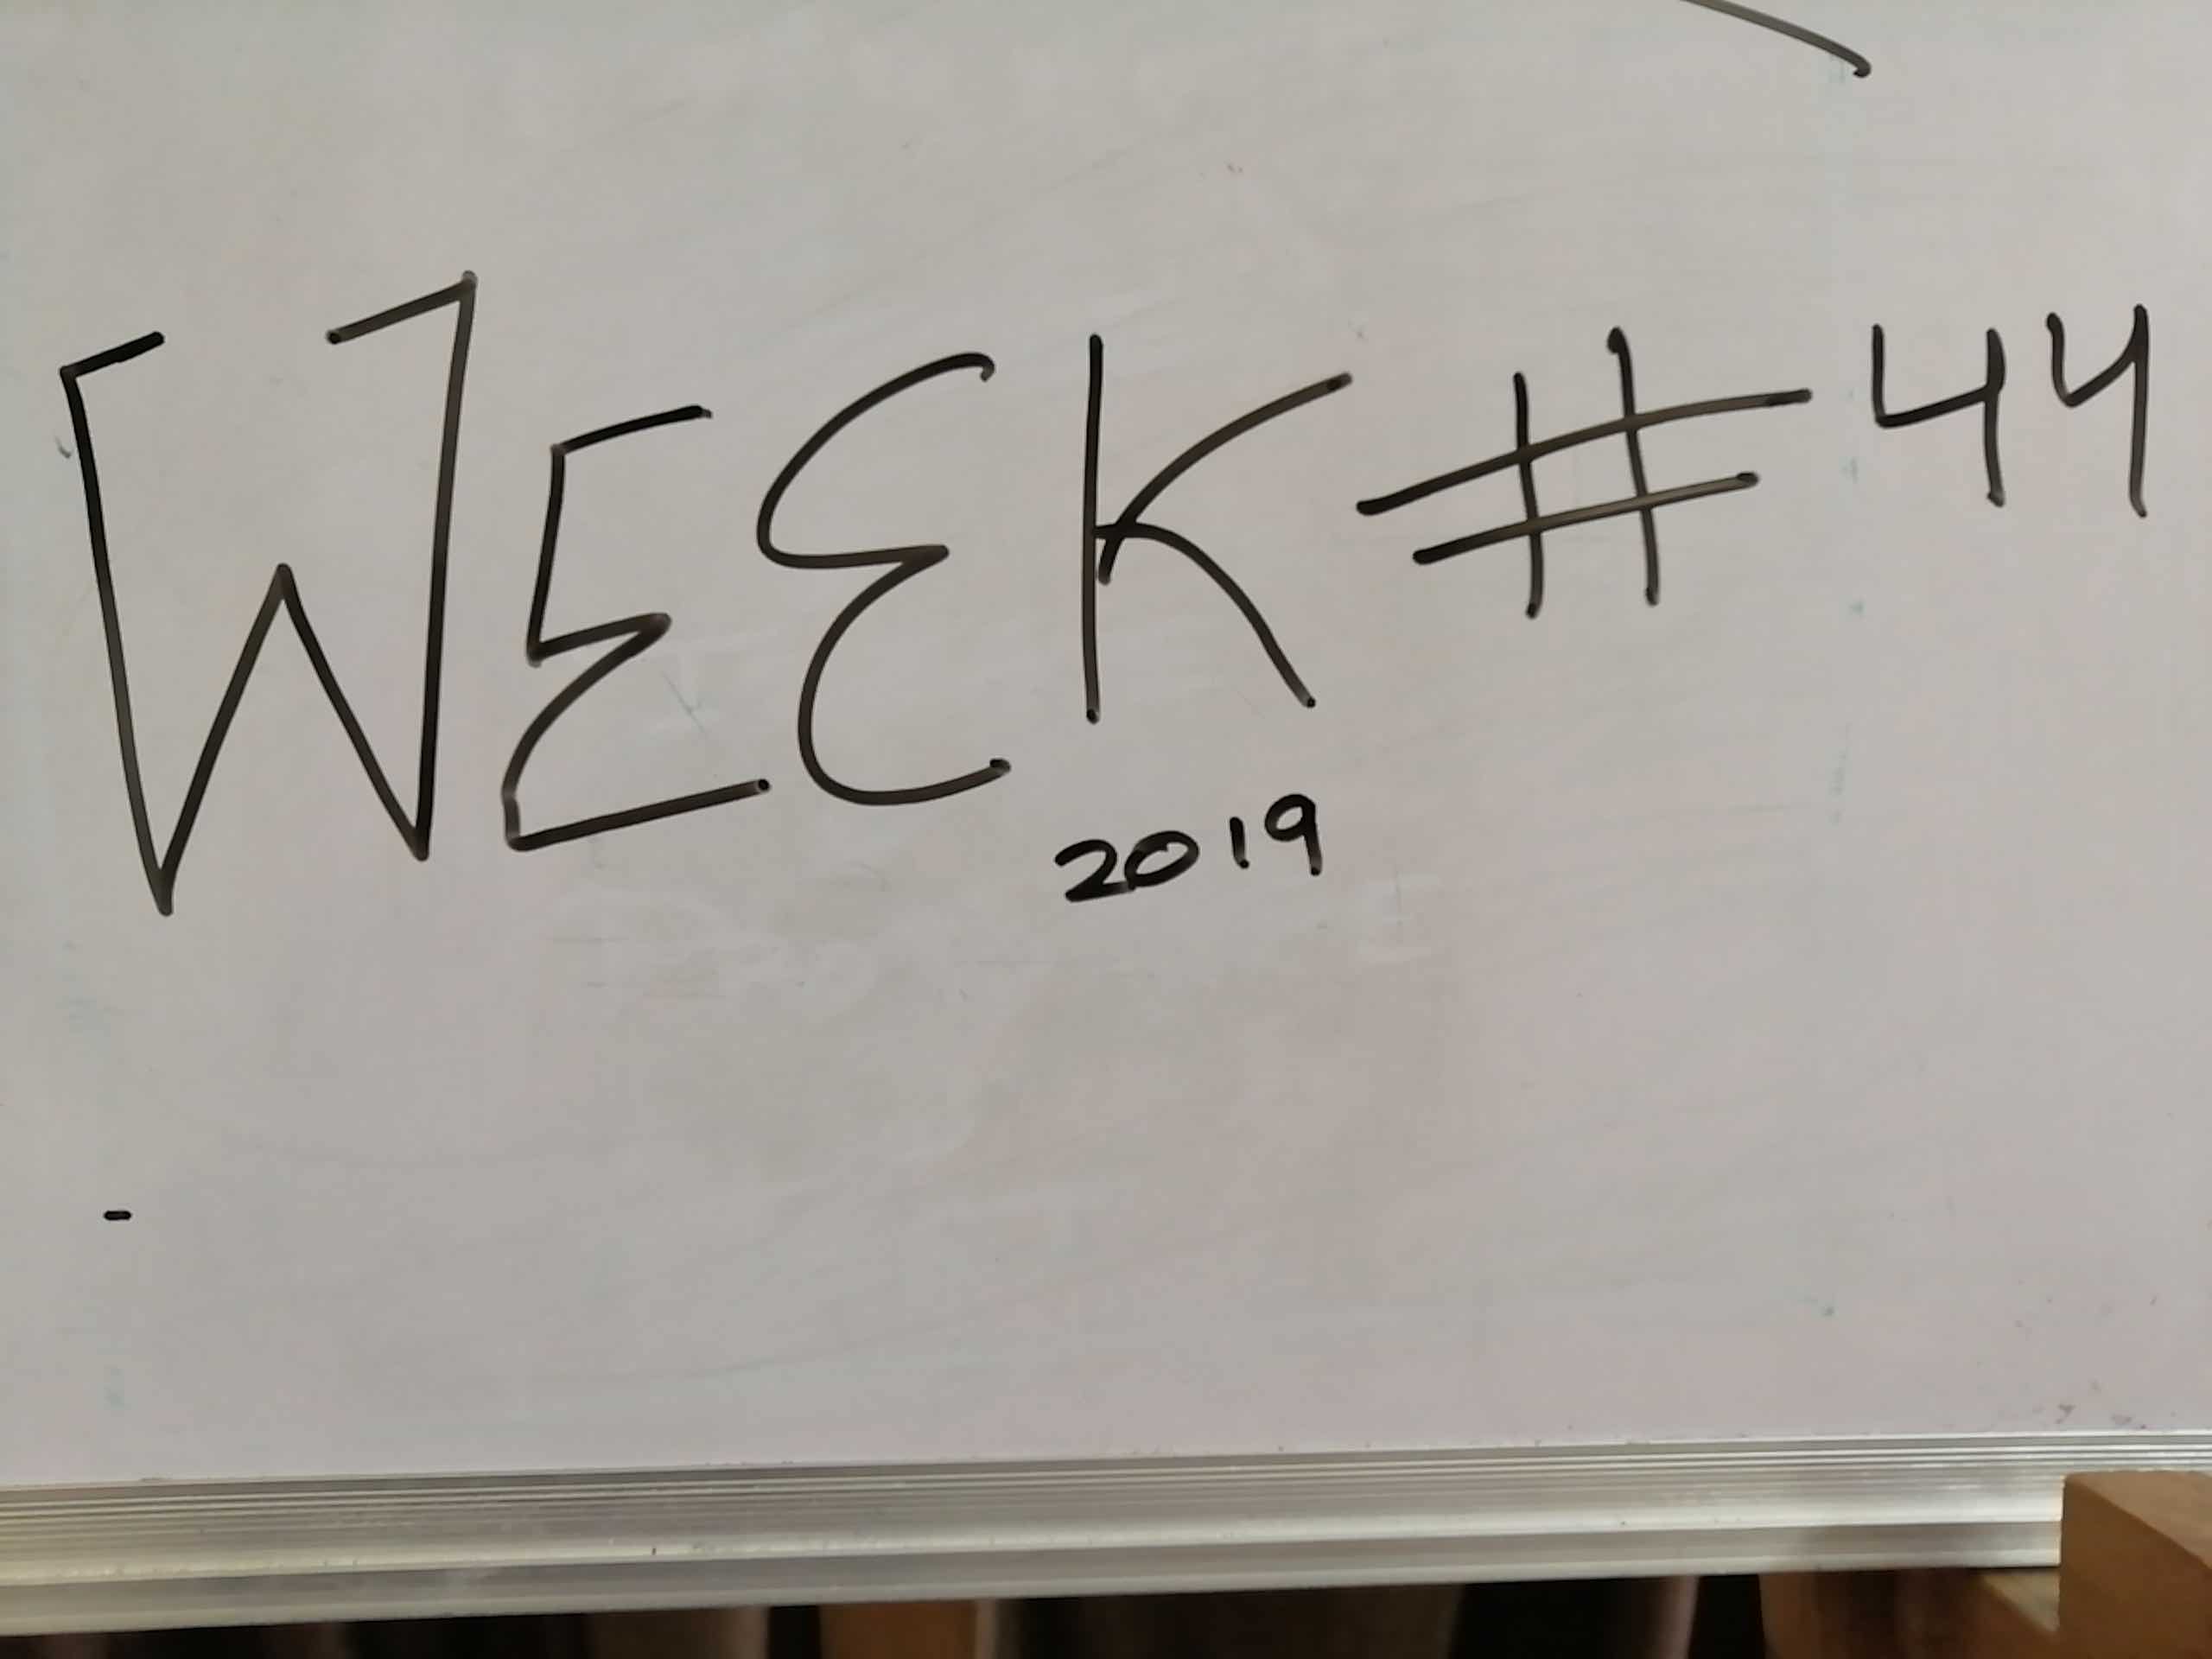 WEEK #44
2019
-